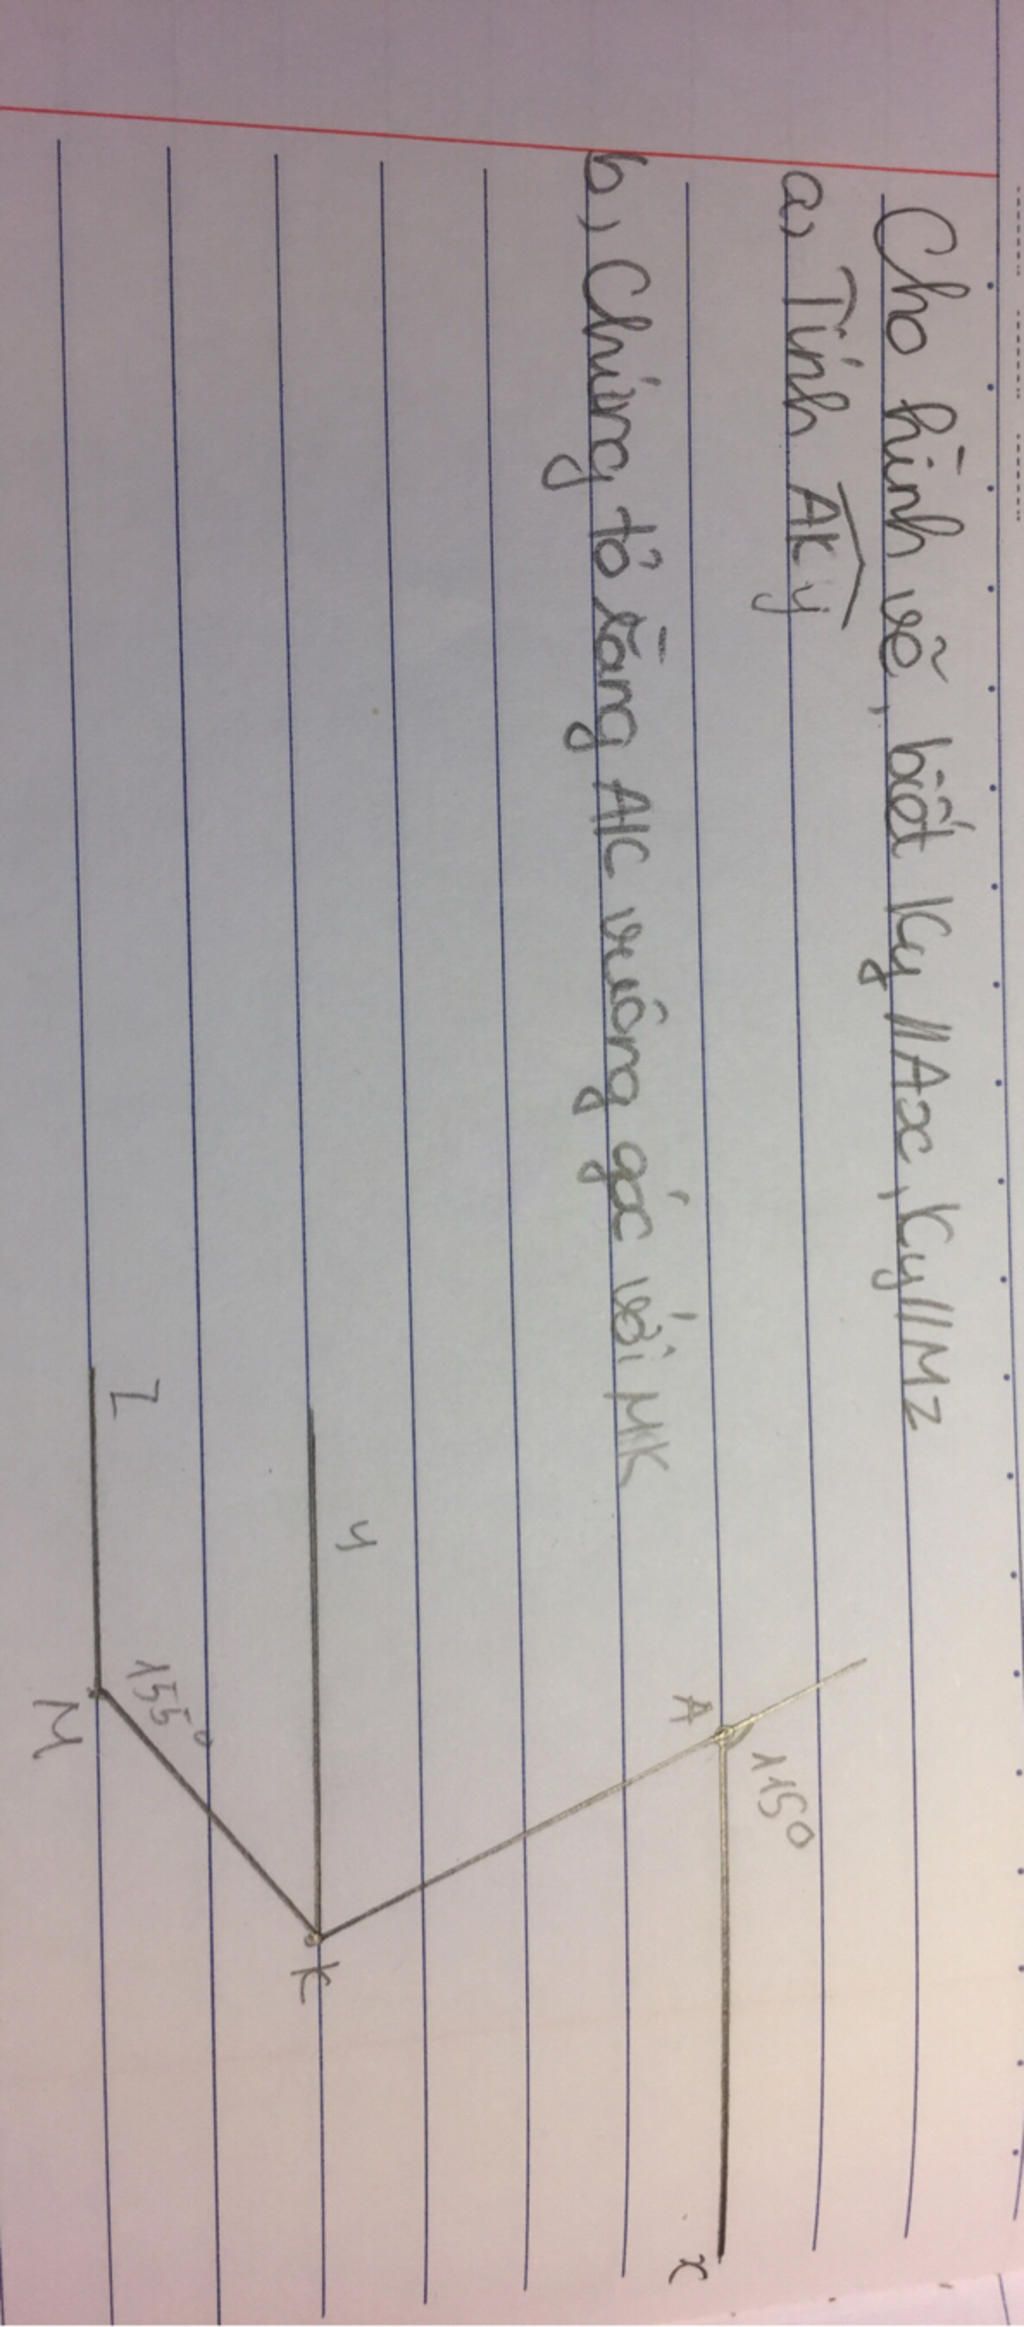 Cho hình vẽ, biết Ky // Ax, Ky // Mz
a, Tính AKy
b, Chứng tỏ rằng AK vuông góc với MK
A
115°
x
y
K
z
155°
M